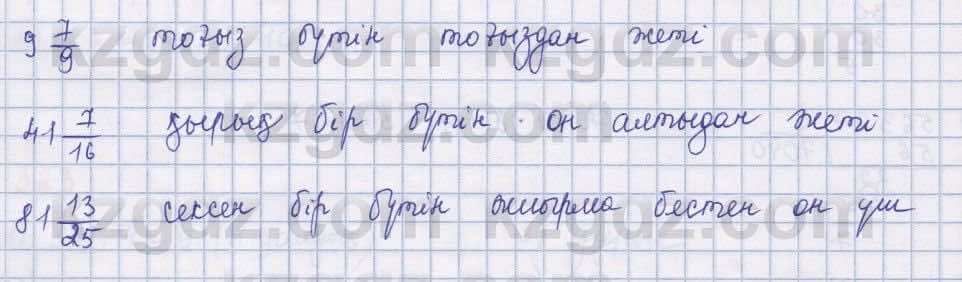 9 7/9 тоғыз бүтін тоғыздан жеті
41 7/16 қырық бір бүтін он алтыдан жеті
81 13/25 сексен бір бүтін жиырма бестен он үш
kzgdz.com kzgdz.com
kzgdz.com
kzgdz.com kzgdz.com